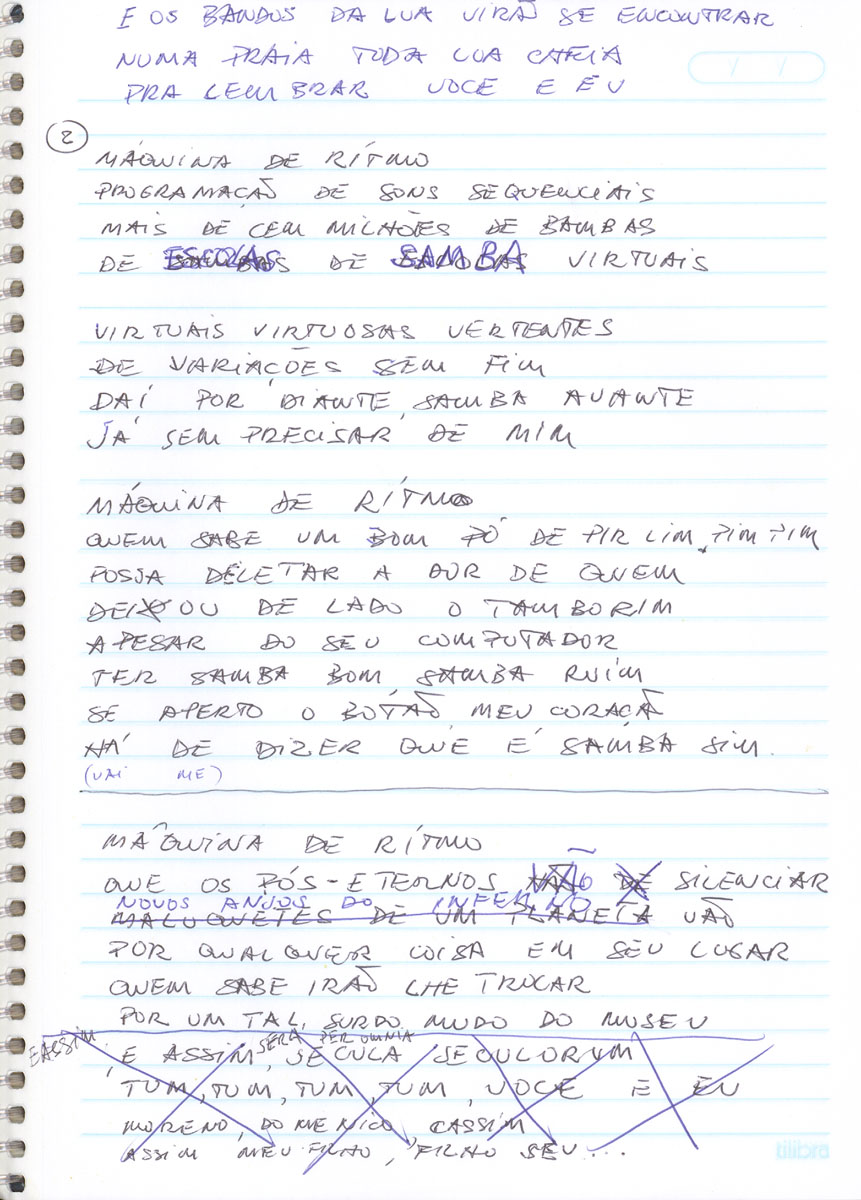 E OS BANDOS DA LUA VIRÃO SE ENCONTRAR
NUMA PRAIA TODA LUA CHEIA
PRA LEMBRAR VOCE E EU
2
MÁQUINA DE RÍTMO
PROGRAMAÇÃO DE SONS SEQUENCIAIS
MAIS DE CEM MILHÕES DE BAMBAS
DE ESCOLAS DE SAMBA VIRTUAIS
VIRTUAIS VIRTUOSAS VERTENTES
DE VARIAÇÕES SEM FIM
DAÍ POR DIANTE, SAMBA AVANTE
JÁ SEM PRECISAR DE MIM
MÁQUINA DE RÍTMO
QUEM SABE UM BOM PÓ DE PIR LIM, PIM PIM
POSSA DELETAR A DOR DE QUEM
DEIXOU DE LADO O TAMBORIM
APESAR DO SEU COMPUTADOR
TER SAMBA BOM SAMBA RUIM
SE APERTO O BOTÃO MEU CORAÇÃO
HÁ DE DIZER QUE É SAMBA SIM.
(VAI ME)
MÁQUINA DE RÍTMO
QUE OS PÓS-ETERNOS VÃO DE SILENCIAR
NOVOS ANJOS DO INFERNO
MALUQUETES DE UM PLANETA VÃO
POR QUALQUER COISA EM SEU LUGAR
QUEM SABE IRÃO LHE TROCAR
POR UM TAL SURDO MUDO DO MUSEU
E ASSIM SERÁ PER OMNIA
E ASSIM, SECULA SECULORUM
TUM, TUM, TUM, TUM, VOCE E EU
MORENO, DOMENICO, CASSIM
ASSIM MEU FILHO, FILHO SEU...
tilibra